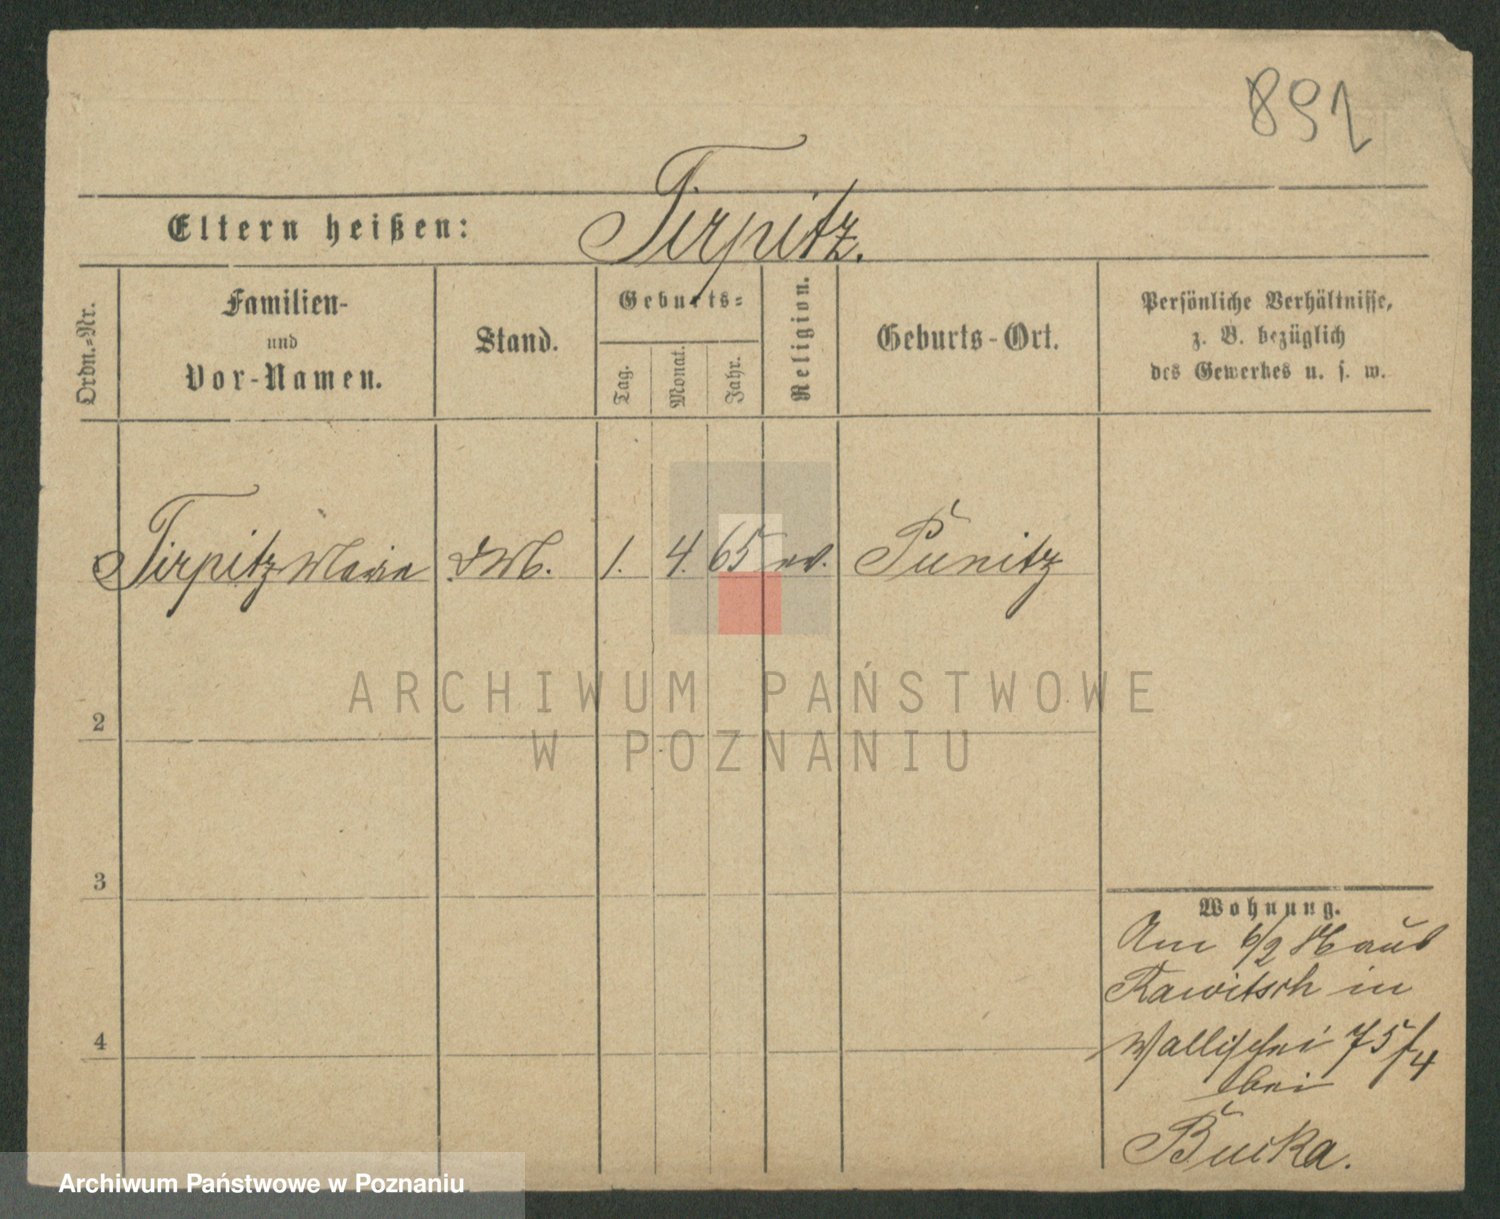 891
Eltern heißen: Tirpitz.
Ordn.-Nr.
Familien-
und
Vor-Namen.
Stand.
Geburts-
Tag.
Monat.
Jahr.
Religion.
Geburts-Ort.
Persönliche Verhältnisse,
z. B. bezüglich
des Gewerbes u. s. w.
Tirpitz Marie 1. 4. 65 ev. Punitz
2
3
4
Wohnung.
Am 6/2 aus
Rawitsch in
Wallischei 75/4
bei
Bucka.
ARCHIWUM PAŃSTWOWE
W POZNANIU
Archiwum Państwowe w Poznaniu